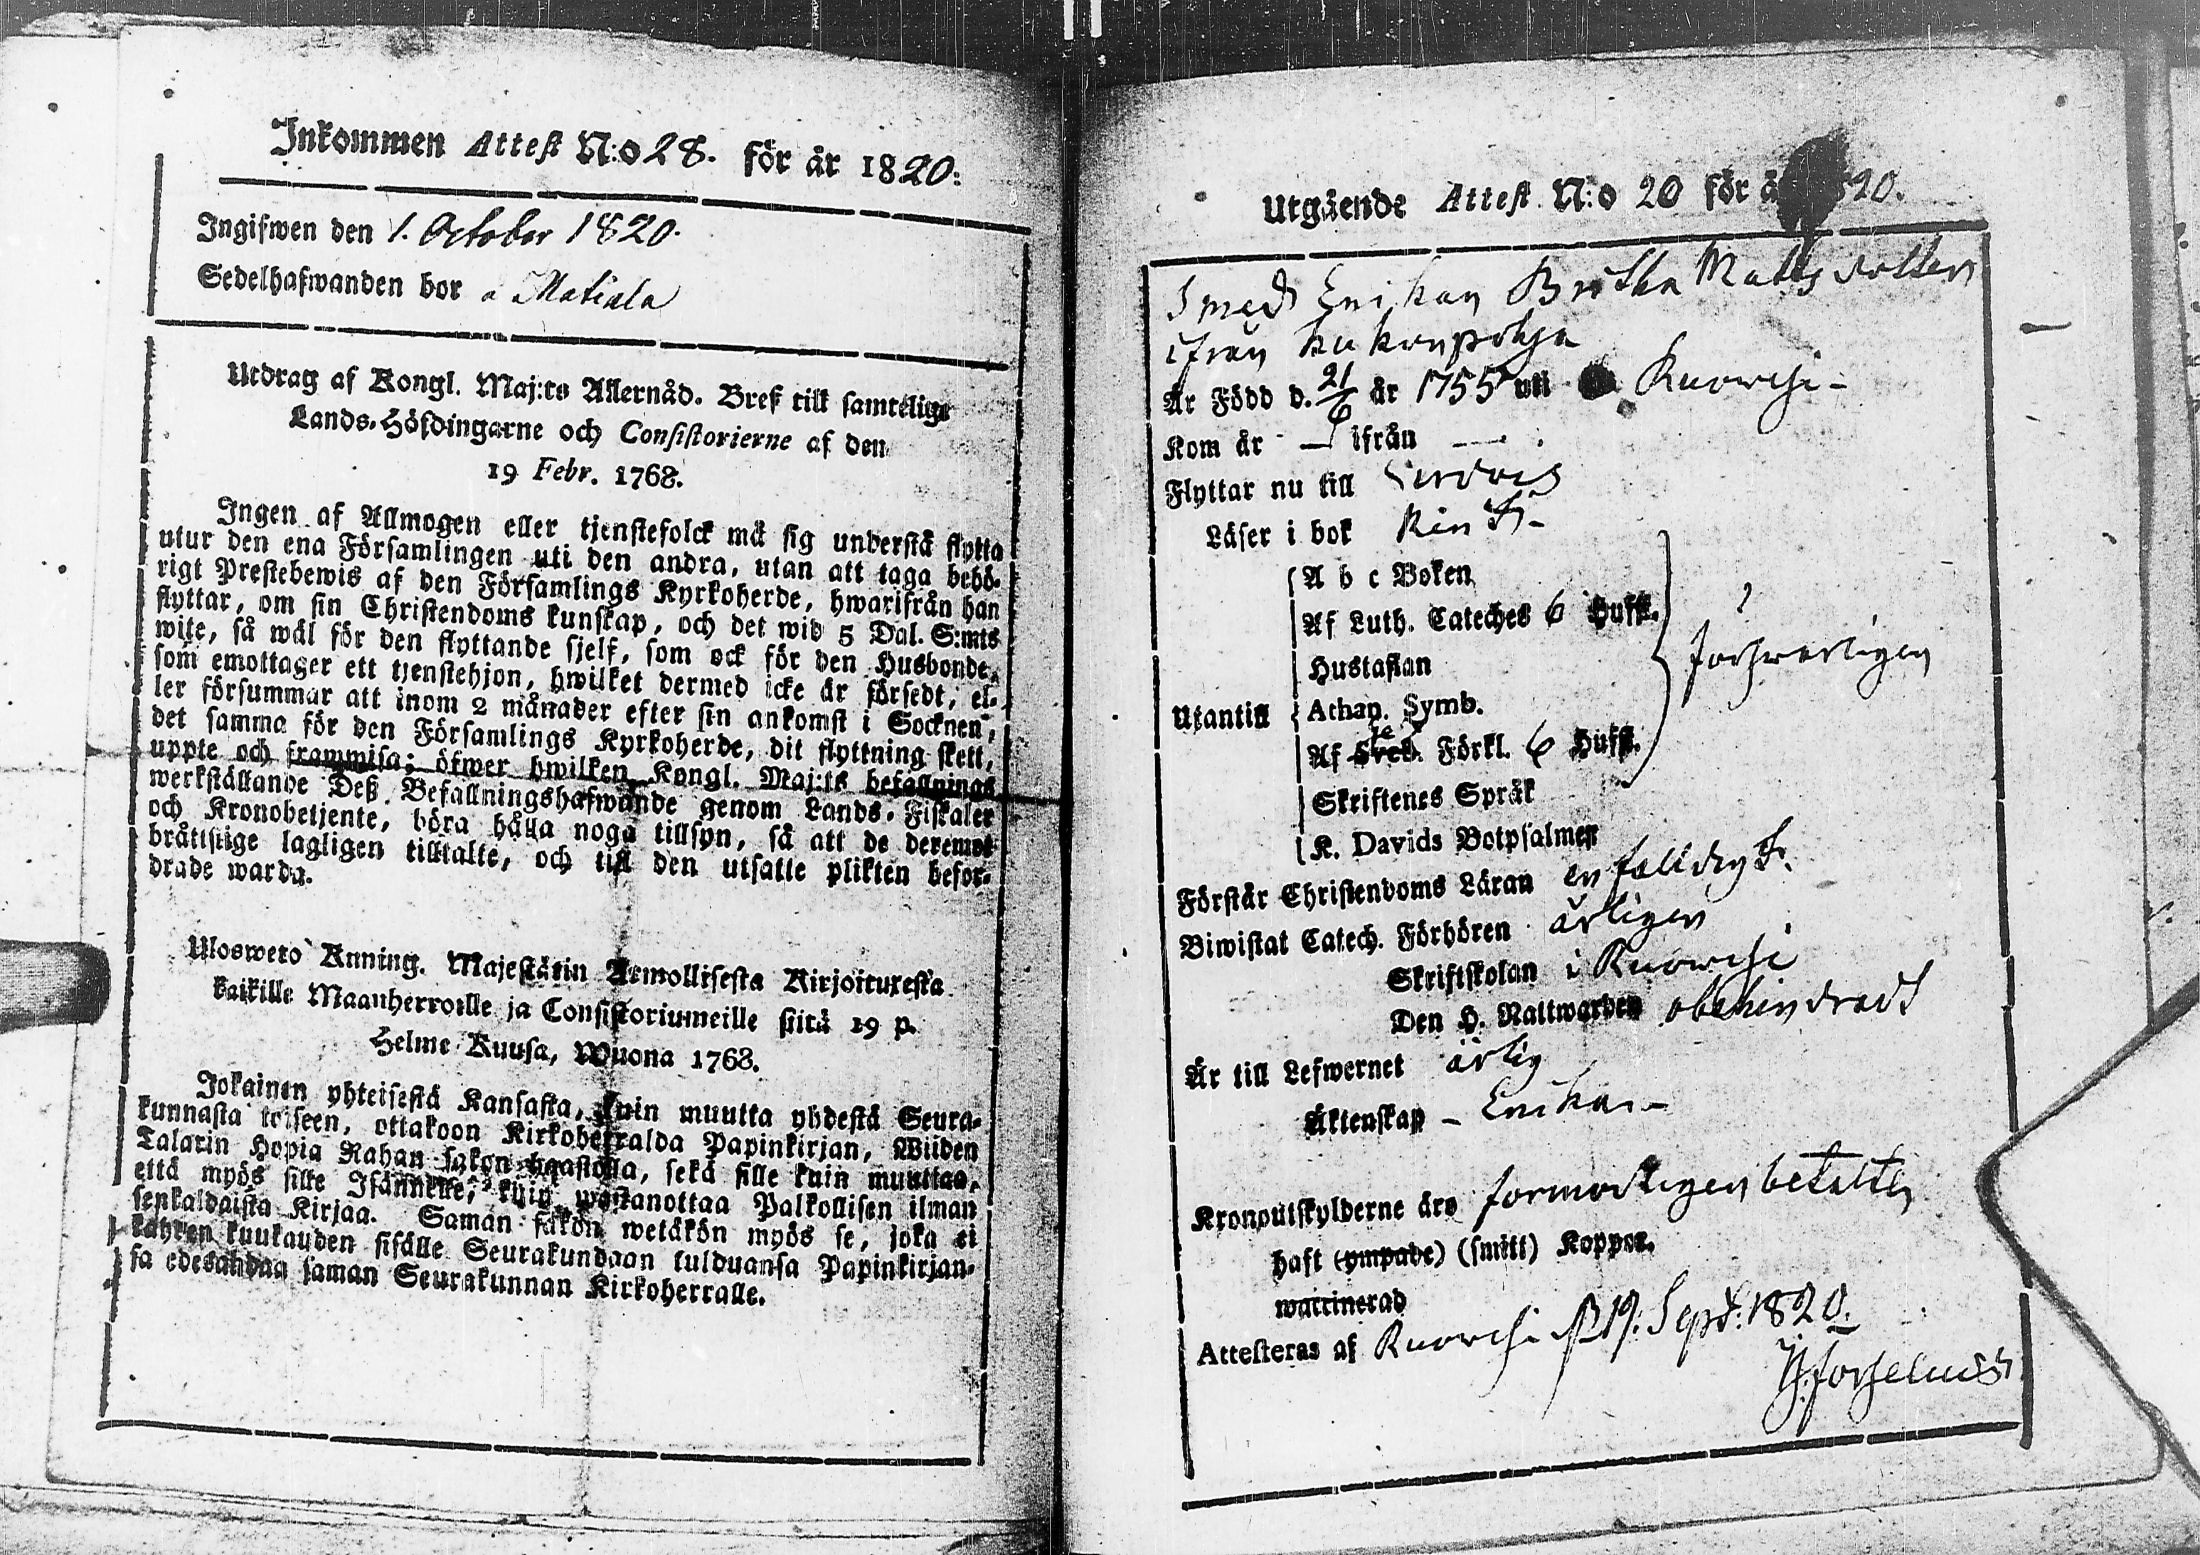 Inkommen Attest N:o 28. för år 1820:
Ingifwen den 1. October 1820.
Sedelhafwanden bor a Matiala
Utdrag af Kongl. Maj:ts Allernåd. Bref till samtelige
Lands-Höfdingarne och Consistorierne af den
19 Febr. 1768.
Ingen af Allmogen eller tjenstefolck må sig understå flytta
utur den ena Församlingen uti den andra, utan att taga behö-
rigt Prestebewis af den Församlings Kyrkoherde, hwarifrån han
flyttar, om sin Christendoms kunskap, och det wid 5 Dal. S:mts
wite, så wäl för den flyttande sjelf, som ock för den Husbonde,
som emottager ett tjenstehjon, hwilket dermed icke är försedt, el-
ler försummar att inom 2 månader efter sin ankomst i Socknen,
det samma för den Församlings Kyrkoherde, dit flyttning skett,
uppte och frammisa; öfwer hwilken Kongl. Maj:ts befallnings
werkställande Deß Befallningshafwande genom Lands-Fiskaler
och Kronobetjente, böra hålla noga tillsyn, så att de deremot
bråttslige lagligen tilltalte, och till den utsatte plikten befor-
drade warda.
Uloswero Kuning. Majestätin Armollisesta Kirjoituxesta
kaikille Maanherroille ja Consistoriumeille siitä 19 p.
Helme-Kuusa, Wuona 1768.
Jokainen yhteisestä Kansasta, kuin muutta yhdestä Seura-
kunnasta toiseen, ottakoon Kirkoherralda Papinkirjan, Wiiden
Talarin Hopia Rahan sakon haastolla, sekä sille kuin muuttaa,
että myös sille Isännelle, kuin wastanottaa Palkollisen ilman
senkaldaista Kirjaa. Saman sakon wetäkön myös se, joka ei
kahden kuukauden sisälle Seurakundaan tulduansa Papinkirjan-
sa edesanna saman Seurakunnan Kirkoherralle.
Utgående Attest N:o 20 för å 20.
Smeds Enikan Britha Matts dotter
ifrån Kukonpohja
Är Född d. 21/6 år 1755 uti Kuorehi -
Kom år — ifrån —
Flyttar nu till
Läser i bok
A b c Boken
Af Luth. Cateches 6 Hufst.
Hustaflan
Utantill Athan. Symb.
Af Sved. Förkl. 6 Hufst.
Skriftenes Språk
K. Davids Botpsalmer
försvarligen
Förstår Christendoms Läran enfalldigt.
Biwistat Catech. Förhören årligen
Skriftskolan i Kuorehi
Den H. Nattwarden obehindradt
Är till Lefwernet ärlig
Äktenskap - Enka -
Kronoutskylderne äro formodligen betalte
haft (ympade) (smitt) Koppor.
waccinerad
Attesteras af Kuorehi 19. Sept. 1820.